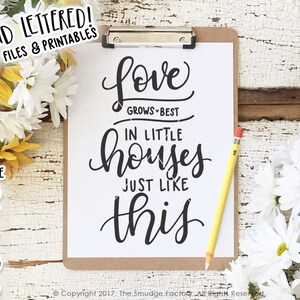 D LETTERED!
FILES & PRINTABLES
Love
GROWS BEST
IN LITTLE
houses
JUST LIKE
this
© Copyright 2017, The Smudge Factory. All rights reserved